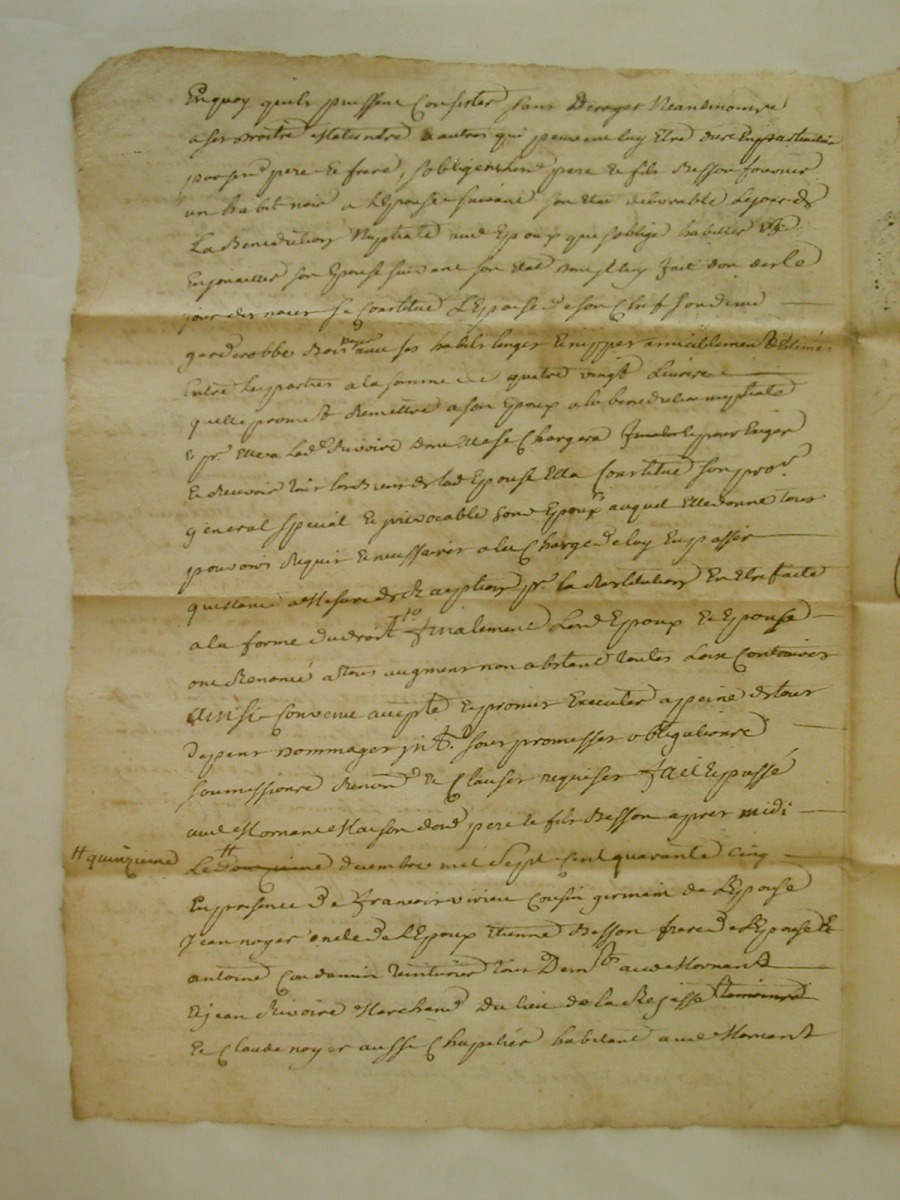 Enquoy quils puissent Consister sans Deroger Neantmoins
a ses droits Maternels & autres qui peuvent luy Etre
par sesd pere & frere, sobligent lesd pere & fils Besson fournir
un habit noir a LEpouse suivant son Etat le jour de
La Benediction Nuptiale aud Epoux que soblige habiller &
Enjoueller son Epouse suivant son Etat luy fait don des le
jour des noces se Constitue LEpouse de son Chef son
garderobbe Bois noyer avec ses habits linges & nippes amiablement Estimés
Entre les parties a la somme de quatre vingt Livres
quelle promet Remettre a son Epoux a la benediction nuptiale
Lad Rivoire se Chargera pour Exiger
Et Recevoir tous les Biens de lad Epouse Ella Constitué son pror
general special & irrevocable sond Epoux auquel Elle donne tous
pouvoirs Requis & necessaires a la Charge de luy En passer
quittance a Mesure de Reception pr. la Restitution En Etre faite
a la forme du droit finalement Lesd Epoux & Epouse
ont Renoncé a tous augment non obstant toutes Loix Contraires
ainsi Convenu accepté & promis Executer a peine de tous
Depens Dommages jnt. sous promesses obligations
soumissions Renon & Clauses requises fait & passé
aud Mornant Maison desd pere & fils Besson apres midi
# quinzieme
Le # decembre mil Sept Cent quarante Cinq
En presence De francois virieu Cousin germain de LEpouse
Jean noyer oncle De LEpoux Etienne Besson frere de LEpouse &
antoine Condamin teinturier tous Demts aud Mornant
& jean Rivoire Marchand Du lieu de la Rejasse temoins
Et Claude noyer aussi Chapelier habitant aud Mornant